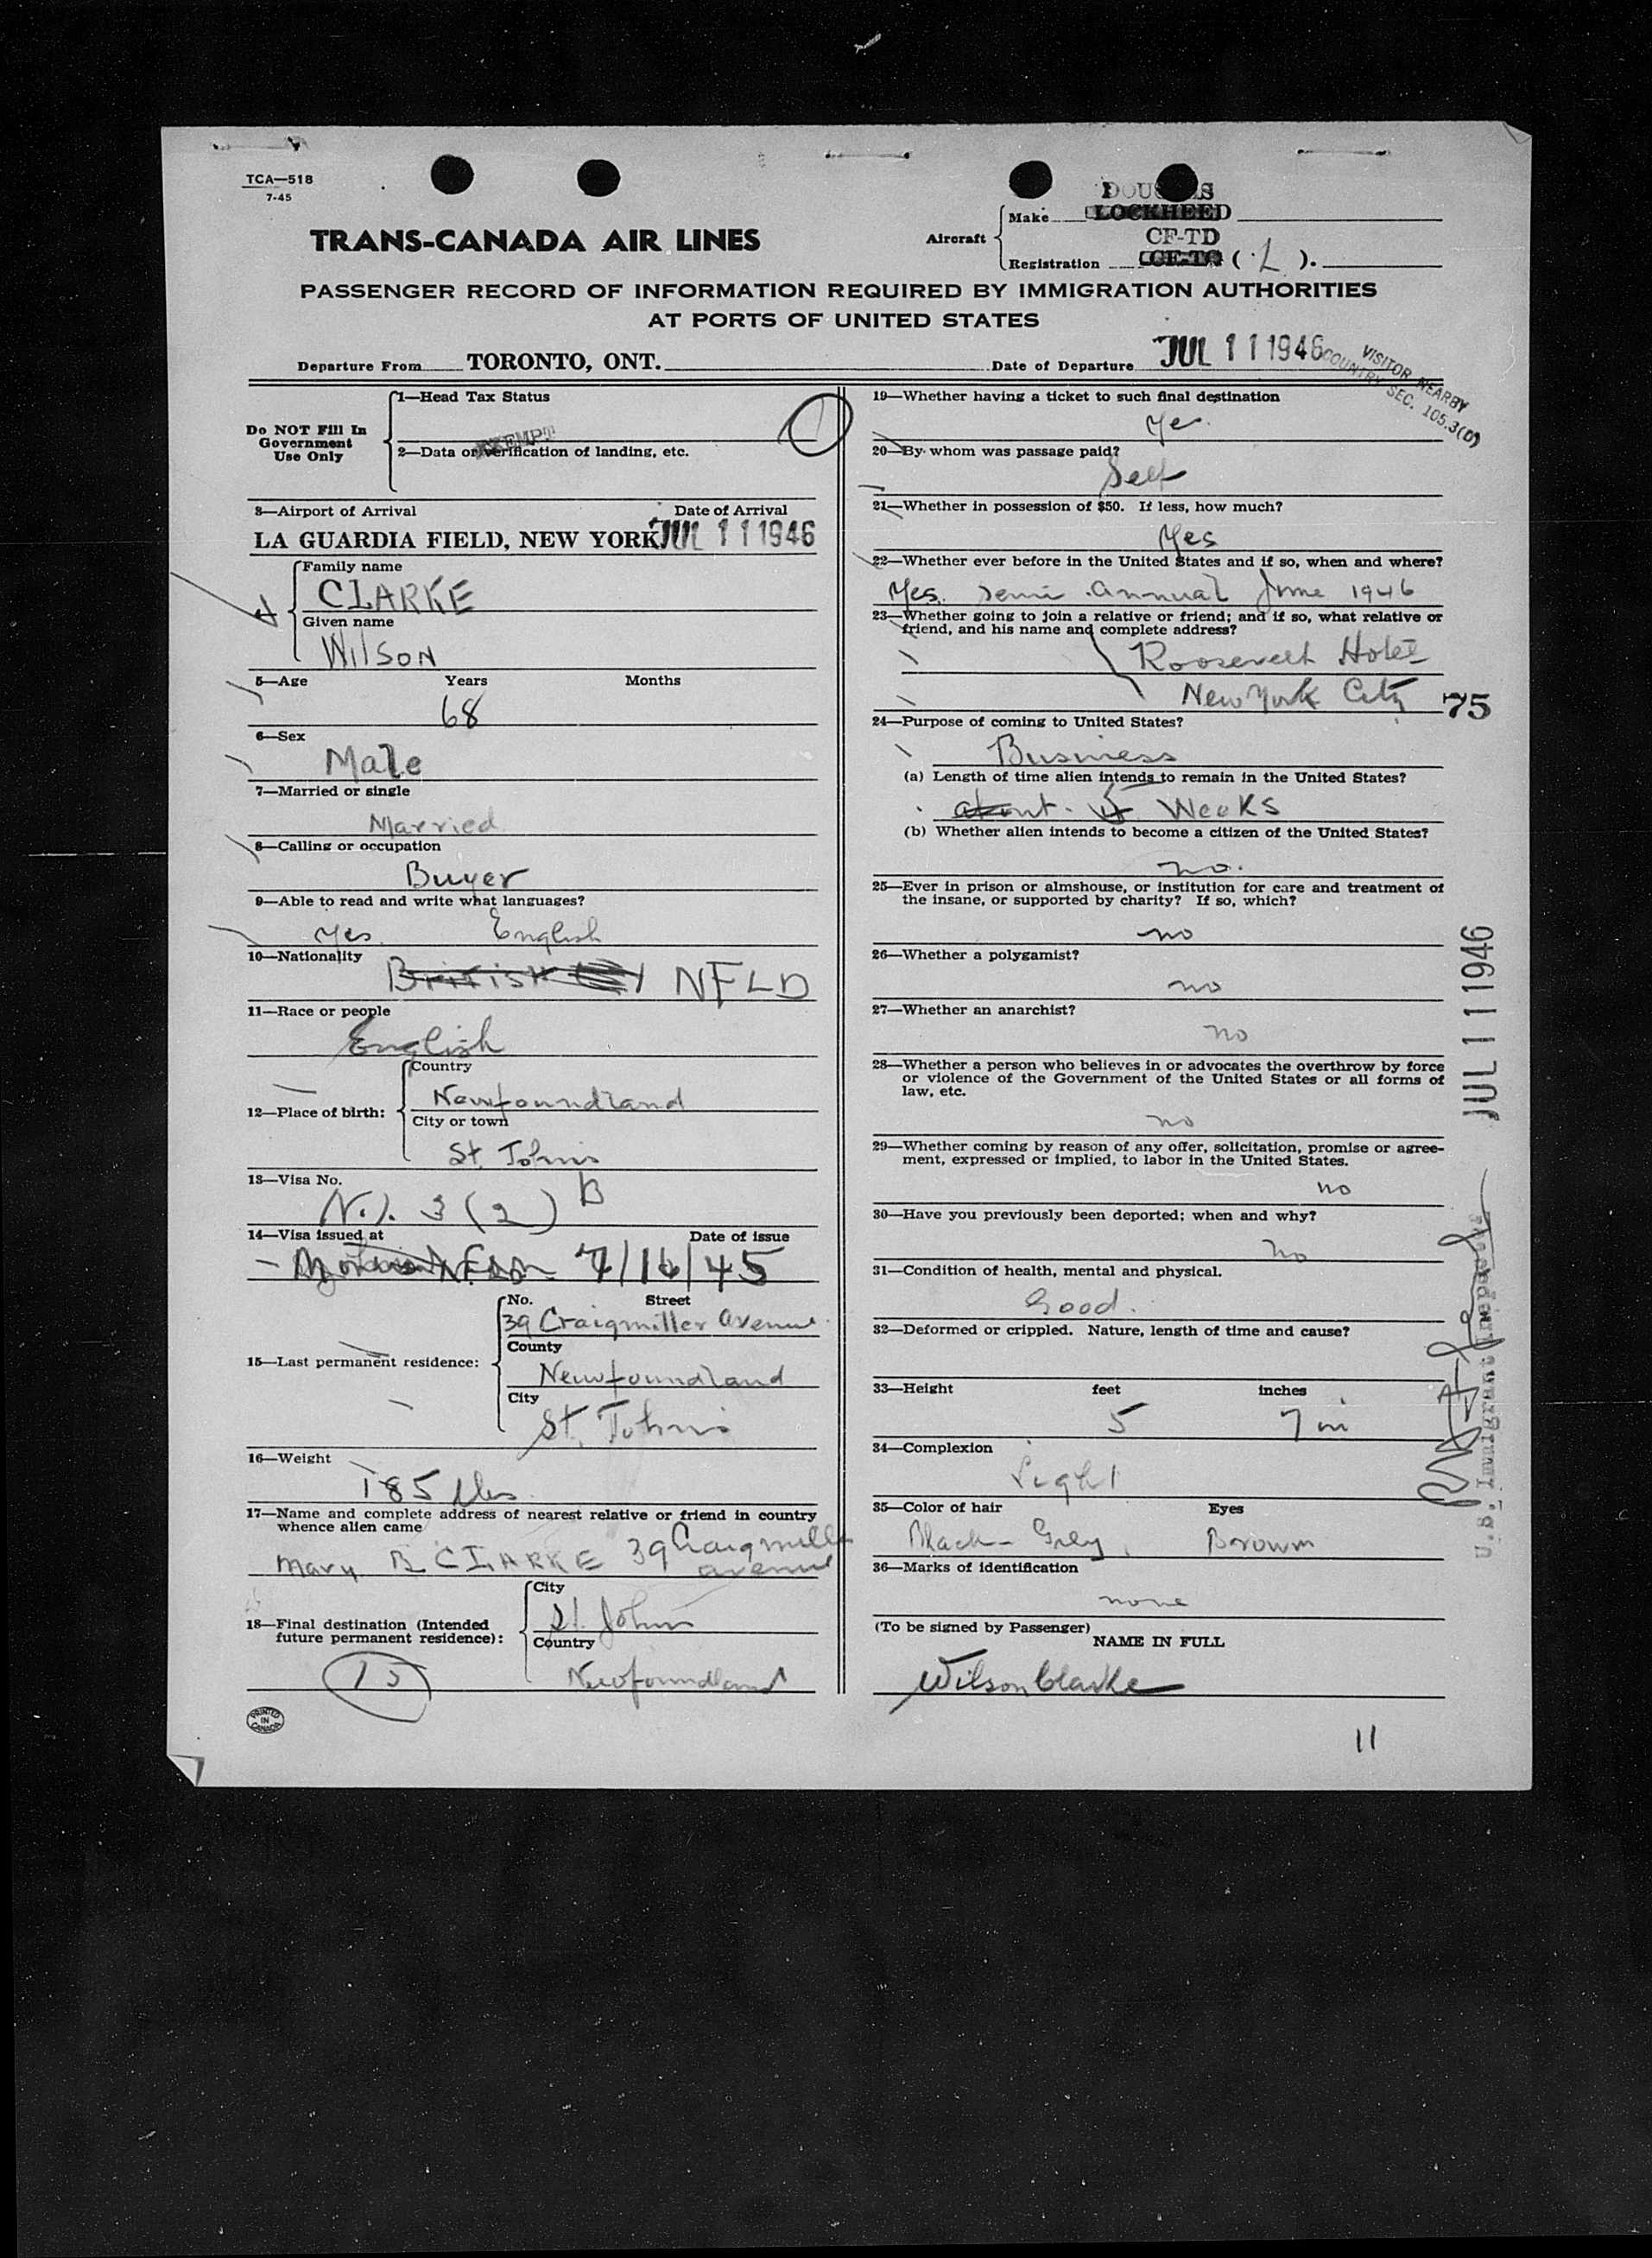 TCA—518
7-45
TRANS-CANADA AIR LINES
Aircraft
Make DOUGLAS
LOCKHEED
CF-TD
Registration ( L ).
PASSENGER RECORD OF INFORMATION REQUIRED BY IMMIGRATION AUTHORITIES
AT PORTS OF UNITED STATES
Departure From TORONTO, ONT. Date of Departure JUL 11 1946
VISITOR NEARBY
COUNTRY SEC. 105.3(D)
Do NOT Fill In
Government
Use Only
1—Head Tax Status
EXEMPT
2—Data or verification of landing, etc.
3—Airport of Arrival Date of Arrival
LA GUARDIA FIELD, NEW YORK JUL 11 1946
Family name
CLARKE
Given name
Wilson
5—Age Years Months
68
6—Sex
Male
7—Married or single
Married
8—Calling or occupation
Buyer
9—Able to read and write what languages?
Yes English
10—Nationality
British NFLD
11—Race or people
English
12—Place of birth:
Country
Newfoundland
City or town
St. Johns
13—Visa No.
3 (2) B
14—Visa issued at Date of issue
7/16/45
15—Last permanent residence:
No. Street
39 Craigmiller Avenue
County
Newfoundland
City
St. Johns
16—Weight
185 lbs
17—Name and complete address of nearest relative or friend in country
whence alien came
Mary B CLARKE 39 Craigmiller
avenue
18—Final destination (Intended
future permanent residence):
City
St. Johns
Country
Newfoundland
PRINTED
IN
CANADA
19—Whether having a ticket to such final destination
Yes
20—By whom was passage paid?
Self
21—Whether in possession of $50. If less, how much?
Yes
22—Whether ever before in the United States and if so, when and where?
Yes. Semi Annual June 1946
23—Whether going to join a relative or friend; and if so, what relative or
friend, and his name and complete address?
Roosevelt Hotel
New York City 75
24—Purpose of coming to United States?
Business
(a) Length of time alien intends to remain in the United States?
about Weeks
(b) Whether alien intends to become a citizen of the United States?
no.
25—Ever in prison or almshouse, or institution for care and treatment of
the insane, or supported by charity? If so, which?
no
26—Whether a polygamist?
no
27—Whether an anarchist?
no
28—Whether a person who believes in or advocates the overthrow by force
or violence of the Government of the United States or all forms of
law, etc.
no
29—Whether coming by reason of any offer, solicitation, promise or agree-
ment, expressed or implied, to labor in the United States.
no
30—Have you previously been deported; when and why?
no
31—Condition of health, mental and physical.
Good.
32—Deformed or crippled. Nature, length of time and cause?
33—Height feet inches
5 7 in
34—Complexion
Light
35—Color of hair Eyes
Black - Grey, Brown
36—Marks of identification
none
(To be signed by Passenger)
NAME IN FULL
Wilson Clarke
11
JUL 11 1946
U.S. Immigrant Inspector